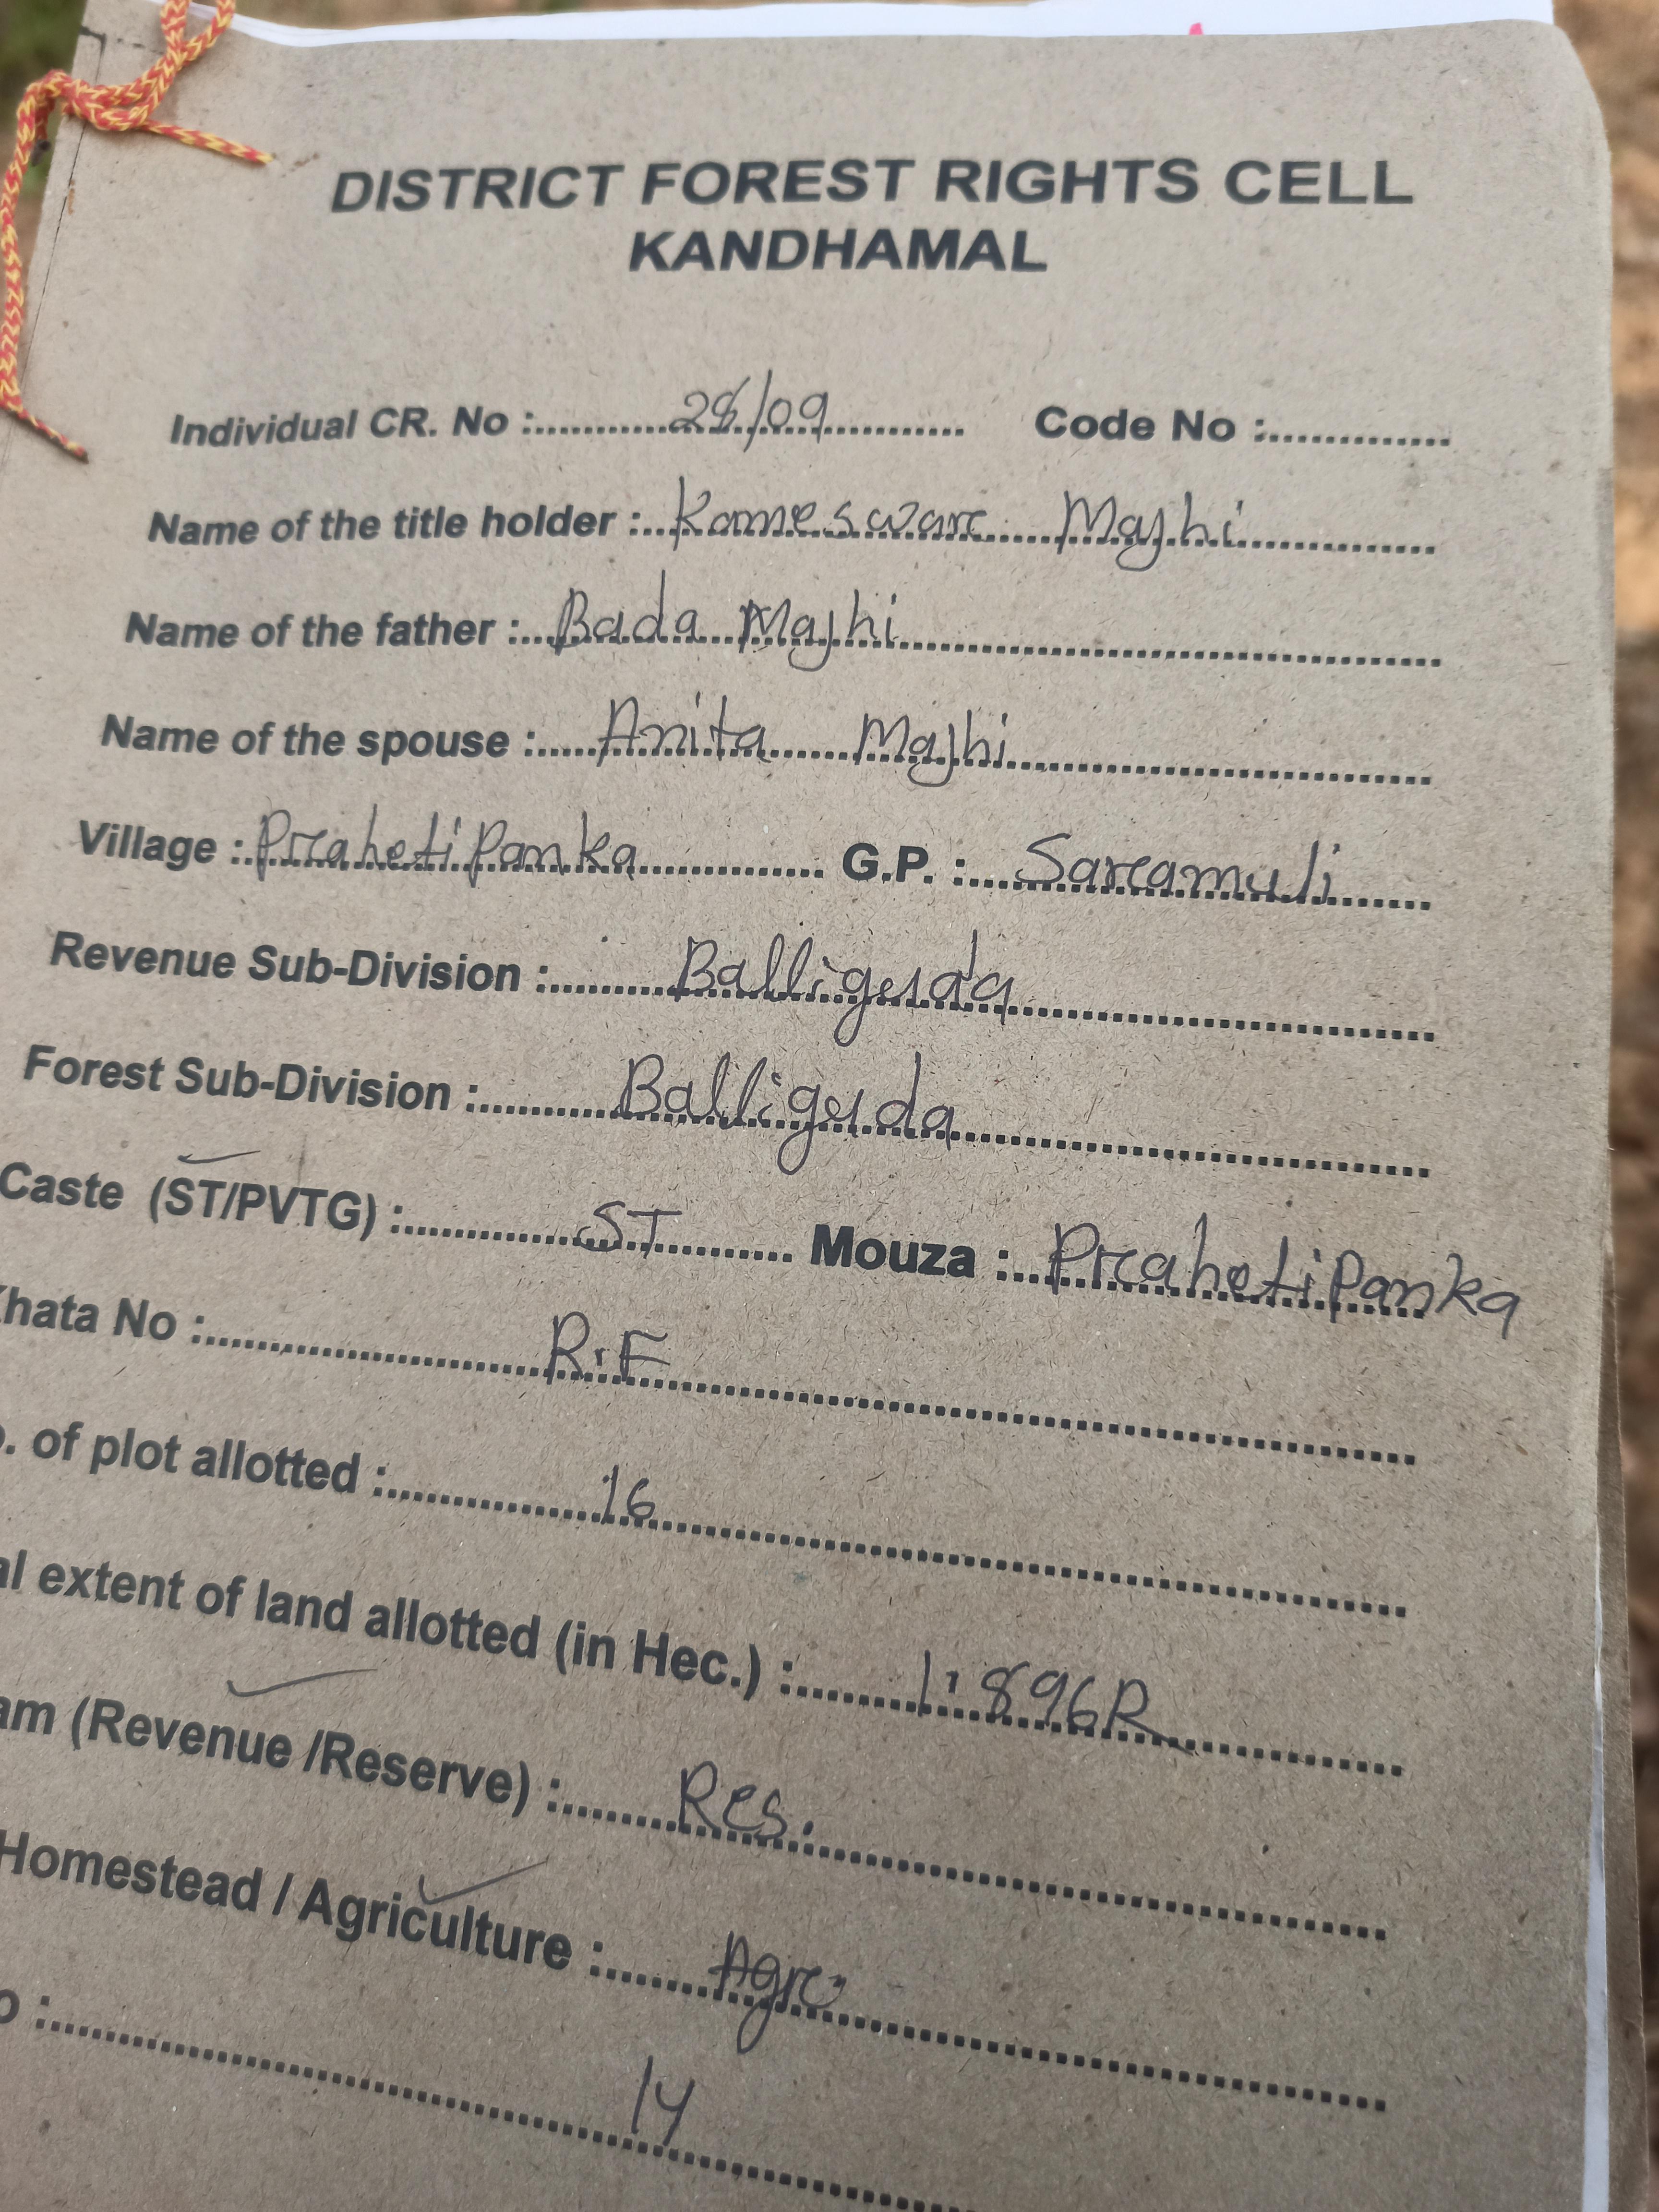 DISTRICT FOREST RIGHTS CELL
KANDHAMAL
Individual CR. No : 28/09 Code No :
Name of the title holder : Kameswarc Majhi
Name of the father : Bada Majhi
Name of the spouse : Anita Majhi
Village : PrcahetiPanka G.P. : Sarcamuli
Revenue Sub-Division : Balliguda
Forest Sub-Division : Balliguda
Caste (ST/PVTG) : ST Mouza : PrcahetiPanka
Khata No : R.F
. of plot allotted : 16
al extent of land allotted (in Hec.) : 1.896R
am (Revenue /Reserve) : Res.
Homestead / Agriculture : Agrc.
o : 14